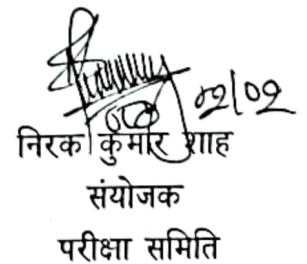 ०२/०२
निरक कुमार शाह
संयोजक
परीक्षा समिति